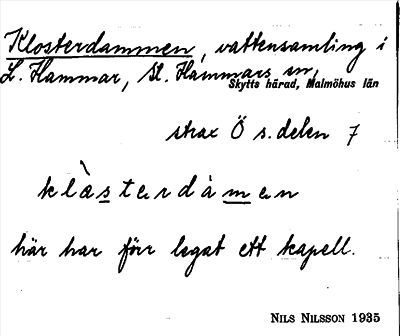 Klosterdammen, vattensamling i
L. Hammar, St. Hammars sn,
Skytts härad, Malmöhus län
strax Ö s. delen 7
klàsterdàmen
här har förr legat ett kapell.
NILS NILSSON 1935